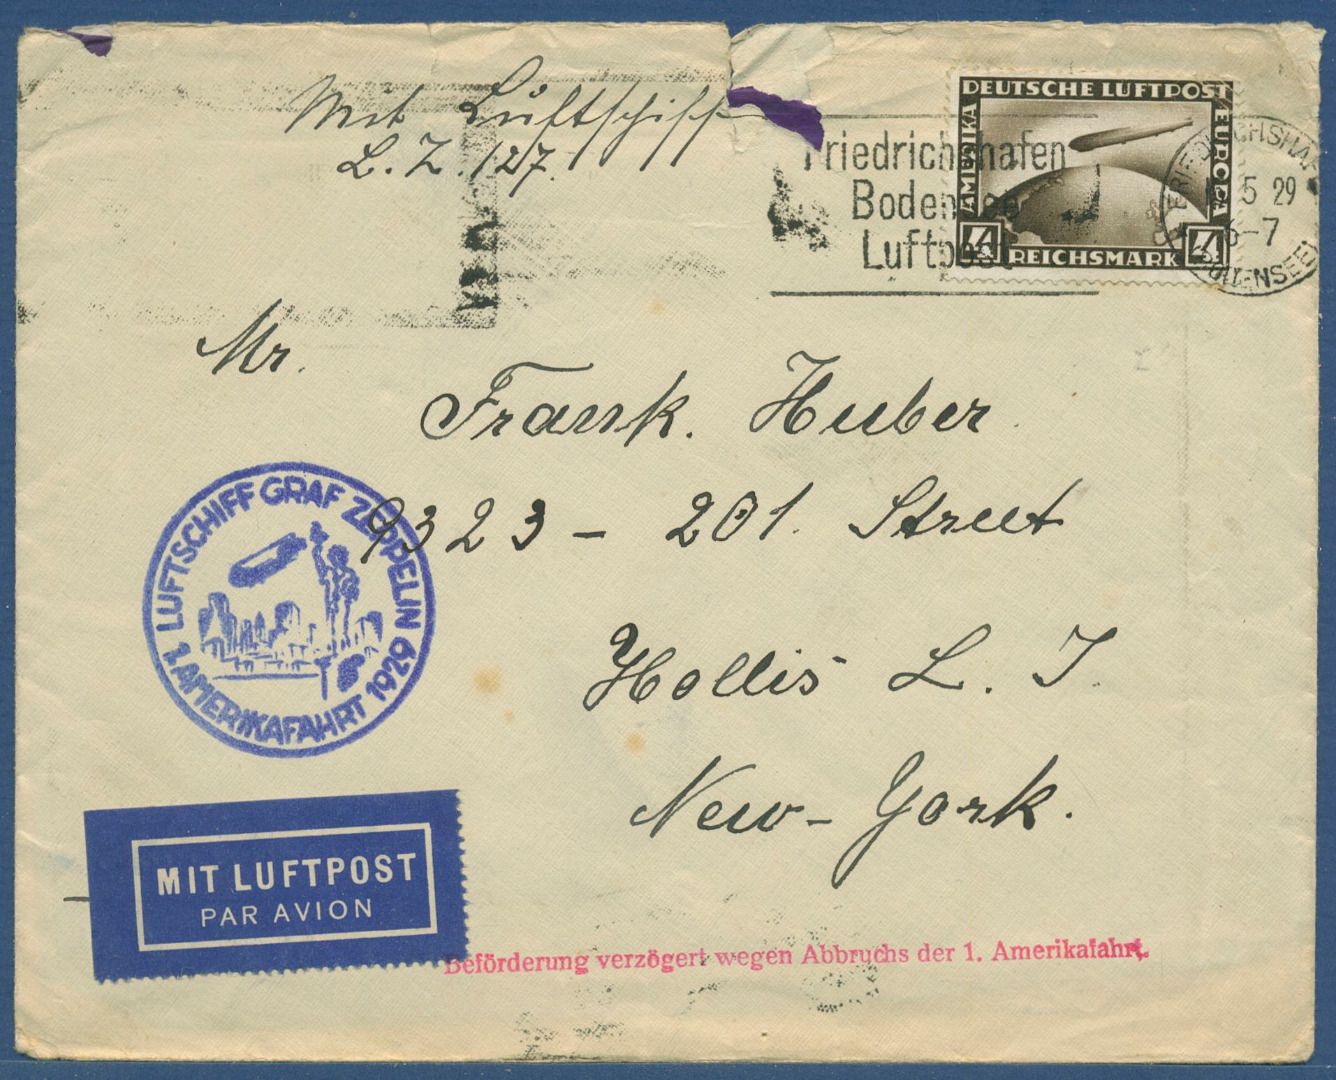 Mit Luftschiff
L. Z. 127.
DEUTSCHE LUFTPOST
AMERIKA
EUROPA
4 REICHSMARK 4
Friedrichshafen
Bodensee
Luftpost
FRIEDRICHSHAFEN
5 29
-7
(BODENSEE)
Mr.
Frank Huber
9323 - 201. Street
Hollis L. I.
New-York.
LUFTSCHIFF GRAF ZEPPELIN
1. AMERIKAFAHRT 1929
MIT LUFTPOST
PAR AVION
Beförderung verzögert wegen Abbruchs der 1. Amerikafahrt.